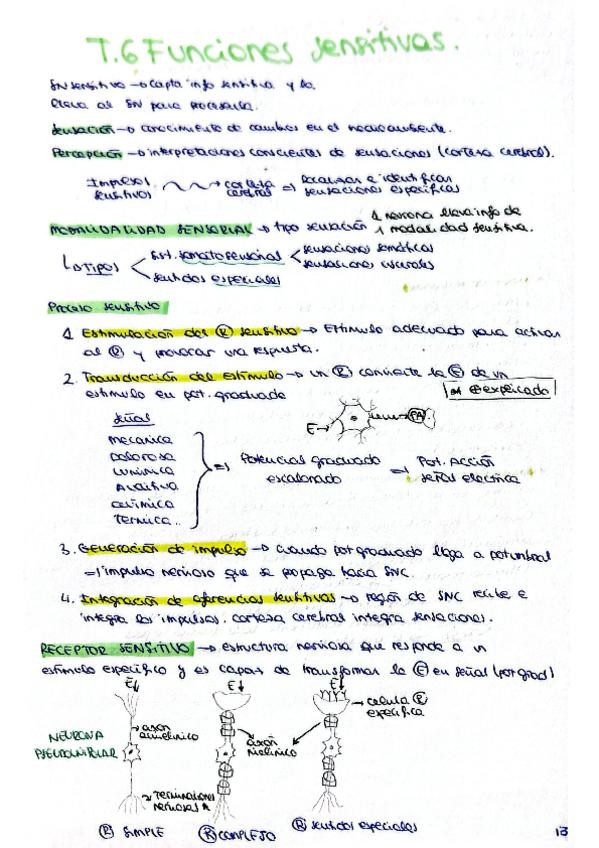 T.6 Funciones sensitivas.
SN sensitivo → Capta info sensitiva y la
lleva al SN para procesarla.
Sensación → conocimiento de cambios en el medio ambiente.
Percepción → interpretaciones conscientes de sensaciones (corteza cerebral).
Impulsos sensitivos corteza cerebral ⇒ Localizar e identificar sensaciones específicas
MODALIDAD SENSORIAL → tipo sensación 1 neurona lleva info de 1 modalidad sensitiva.
↳ TIPOS
Sist. somatosensorial
sensaciones somáticas
sensaciones viscerales
sentidos especiales
Proceso sensitivo
1. Estimulación del Ⓡ sensitivo → Estímulo adecuado para activar
al Ⓡ y provocar una respuesta.
2. Transducción del estímulo → un Ⓡ convierte la Ⓔ de un
estímulo en pot. graduado
⊕ explicado
E→
PA
Señal
mecánica
dolorosa
lumínica
Auditiva
química
térmica..
⇒ Potencial graduado escalonado ⇒ Pot. Acción señal eléctrica
3. Generación de impulso → cuando pot graduado llega a pot umbral
⇒ impulso nervioso que se propaga hacia SNC.
4. Integración de aferencias sensitivas → región de SNC recibe e
integra los impulsos. corteza cerebral integra sensaciones.
RECEPTOR SENSITIVO → estructura nerviosa que responde a un
estímulo específico y es capaz de transformar la Ⓔ en señal (pot grad)
E↓
E↓
E↓
→ célula Ⓡ específica
NEURONA PSEUDOUNIPOLAR
→ axón amielínico
axón mielínico
→ Terminaciones nerviosas
Ⓡ SIMPLE
Ⓡ COMPLEJO
Ⓡ sentidos especiales
13